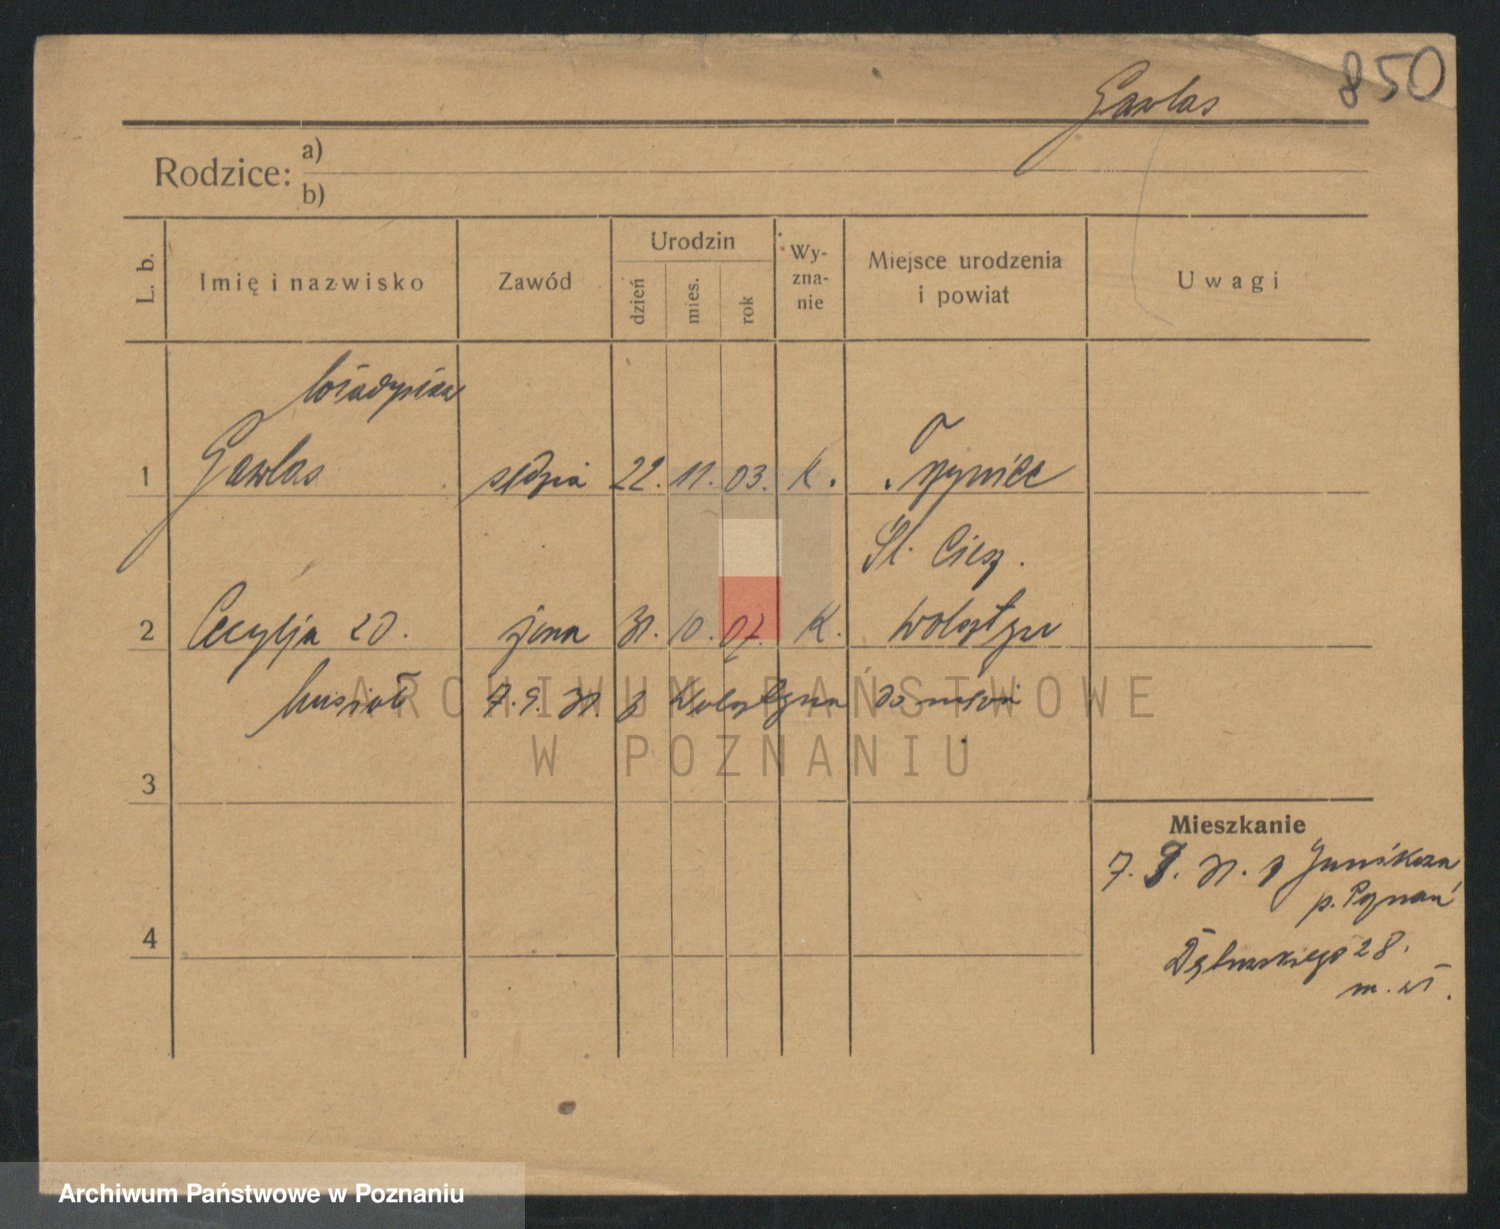 850
Gawlas
Rodzice:
a)
b)
L. b.
Imię i nazwisko
Zawód
Urodzin
dzień
mies.
rok
Wy-
zna-
nie
Miejsce urodzenia
i powiat
Uwagi
Władysław
1 Gawlas sędzia 22. 11. 03. K. Trzyniec
Śl. Ciesz.
2 Cecylja zd. żona 31. 10. 07. K. Wolsztyn
Musiał 7. 9. 31. z Wolsztyna
3
Mieszkanie
7. 9. 31. z
p. Poznań
4
Dąbrowskiego 28.
m.
ARCHIWUM PAŃSTWOWE
W POZNANIU
Archiwum Państwowe w Poznaniu